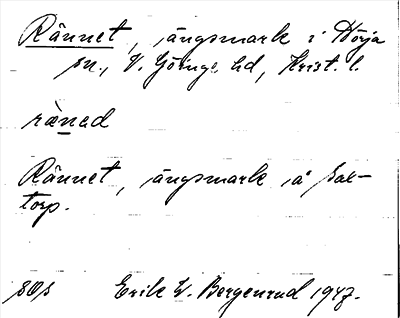 Rännet, ängsmark i Hörja
sn., V. Göinge hd, Krist. l.
ræned
Rännet, ängsmark å
torp.
sOs Erik W. Bergenrud 1947.